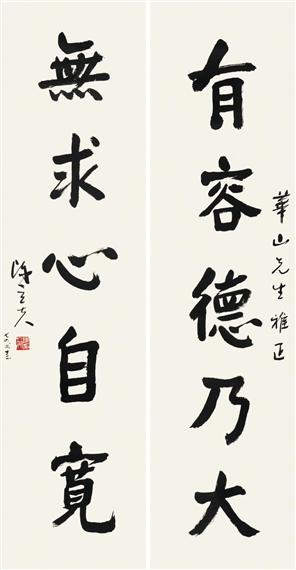 華山先生雅正
有容德乃大
無求心自寬
陳立夫